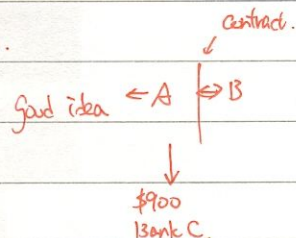 contract.
Good idea ← A ⇔ B
$900
Bank C.